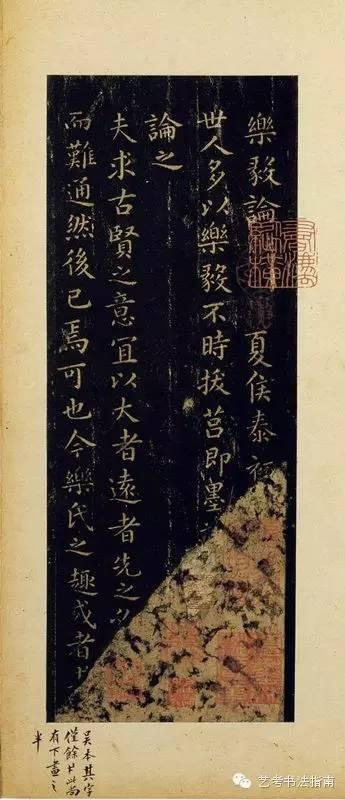 樂毅論 夏侯泰初
世人多以樂毅不時拔莒即墨
論之
夫求古賢之意宜以大者遠者先之
而難通然後已焉可也今樂氏之趣或者
吴本其字
僅餘廿此尚
有下畫之
半
艺考书法指南